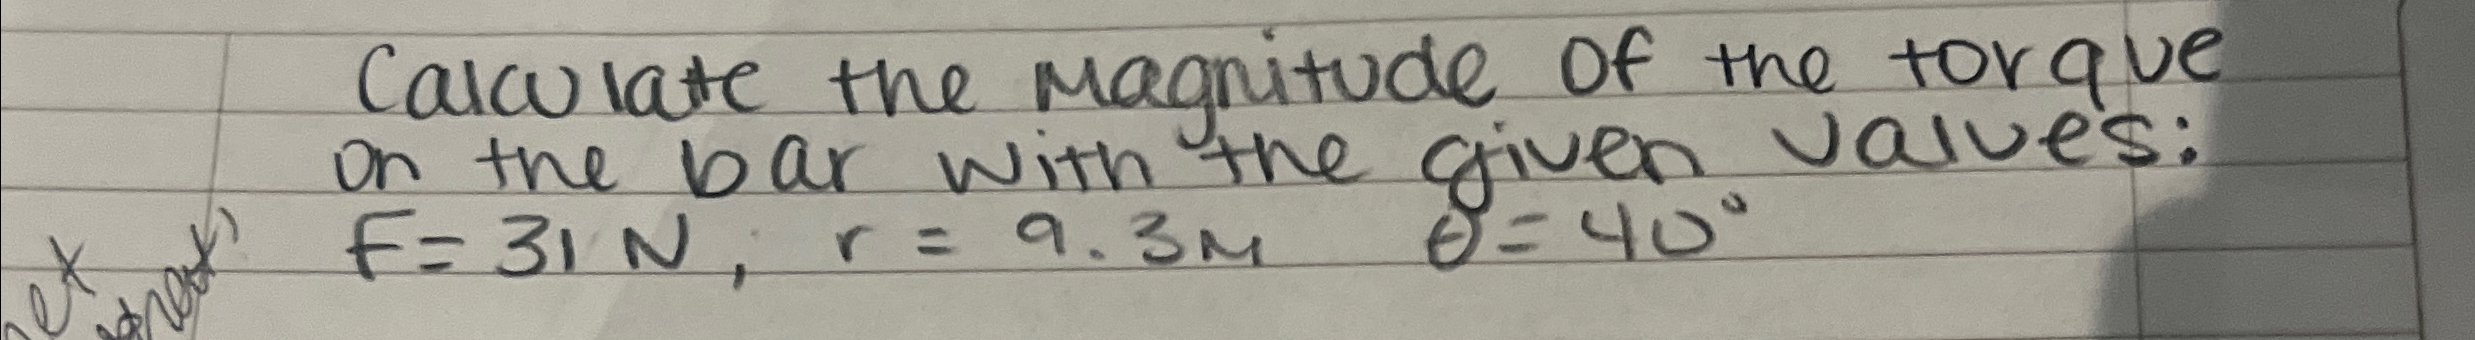 Calculate the Magnitude of the torque
on the bar with the given values:
F = 31 N, r = 9.3M θ = 40°